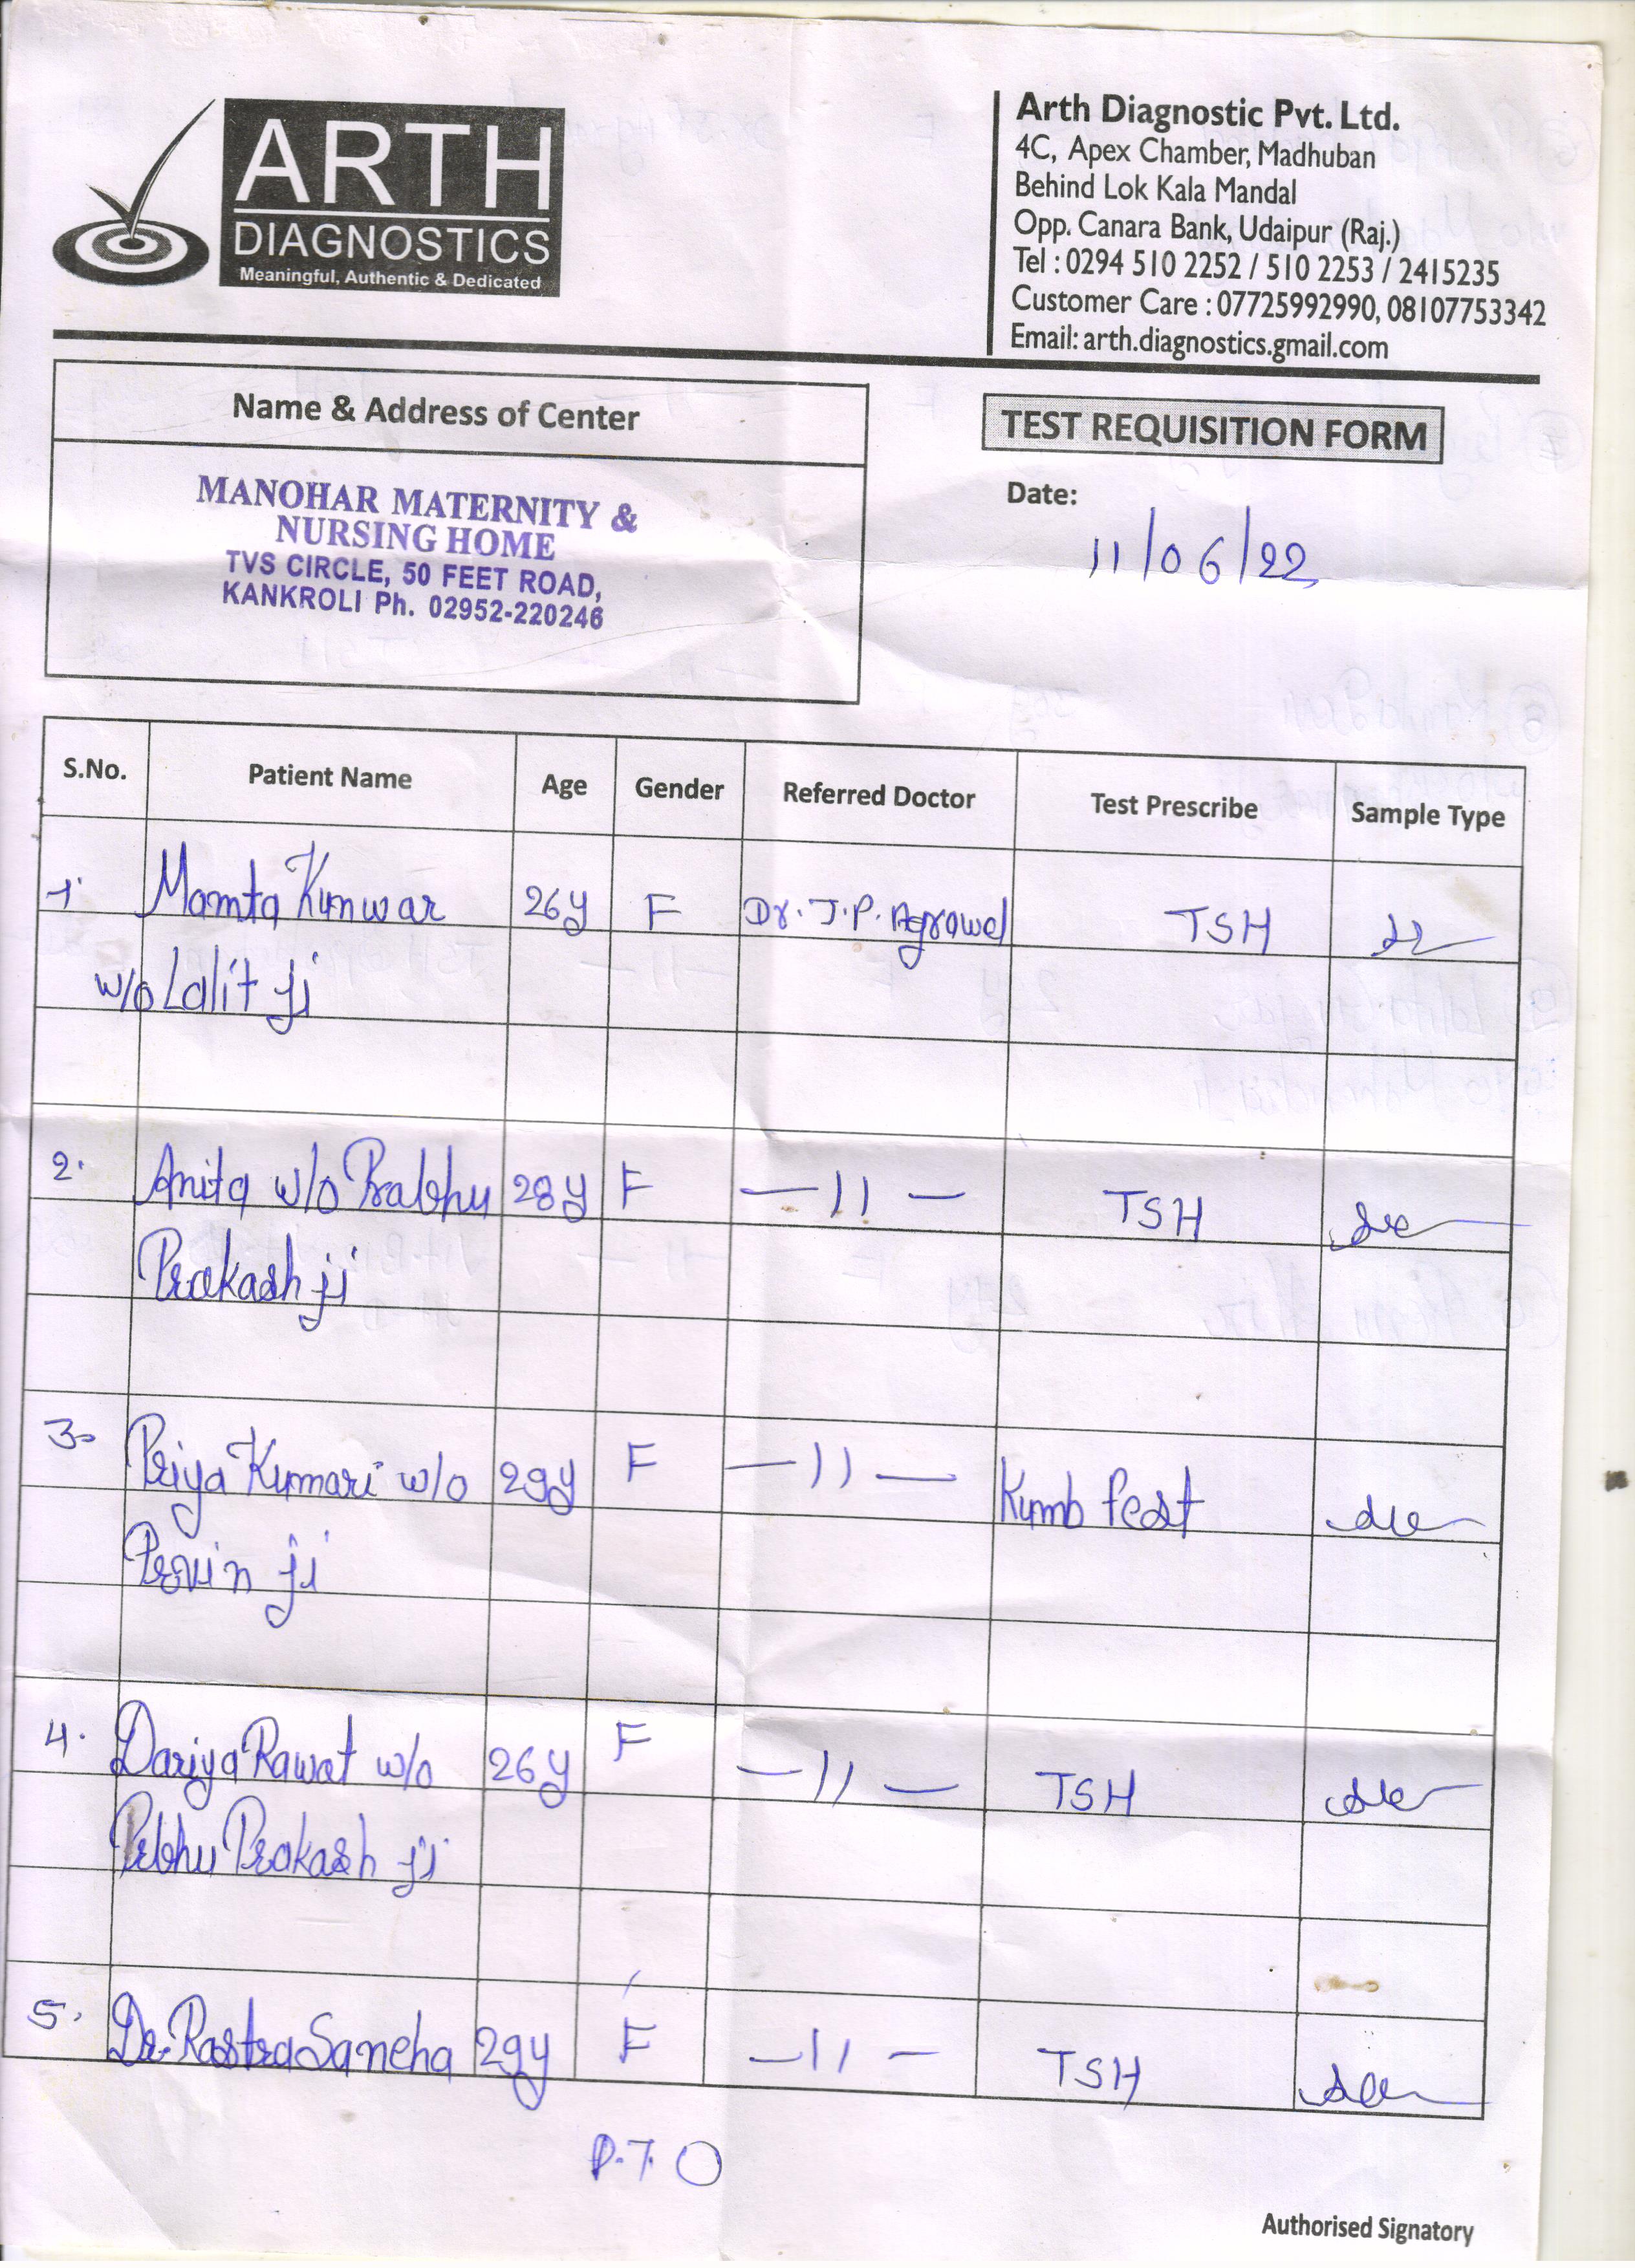 ARTH
DIAGNOSTICS
Meaningful, Authentic & Dedicated
Arth Diagnostic Pvt. Ltd.
4C, Apex Chamber, Madhuban
Behind Lok Kala Mandal
Opp. Canara Bank, Udaipur (Raj.)
Tel : 0294 510 2252 / 510 2253 / 2415235
Customer Care : 07725992990, 08107753342
Email: arth.diagnostics.gmail.com
Name & Address of Center
TEST REQUISITION FORM
MANOHAR MATERNITY &
NURSING HOME
TVS CIRCLE, 50 FEET ROAD,
KANKROLI Ph. 02952-220246
Date:
11/06/22
S.No. Patient Name Age Gender Referred Doctor Test Prescribe Sample Type
1. Mamta Kunwar 26y F Dr. J.P. Agrawal TSH
w/o Lalit ji
2. Anita w/o Prabhu 28y F —11— TSH
Prakash ji
3. Priya Kumari w/o 29y F —11— Kumb Test
Pervin ji
4. Dariya Rawat w/o 26y F —11— TSH
Prbhu Prakash ji
5. Dr. Rastra Saneha 29y F —11— TSH
P.T.O
Authorised Signatory